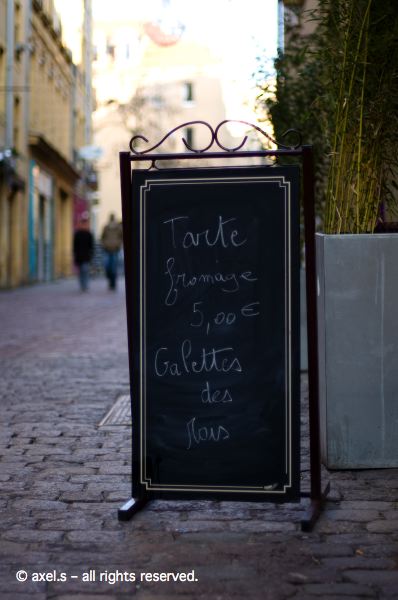 Tarte
fromage
5,00 €
Galettes
des
Rois
© axel.s – all rights reserved.